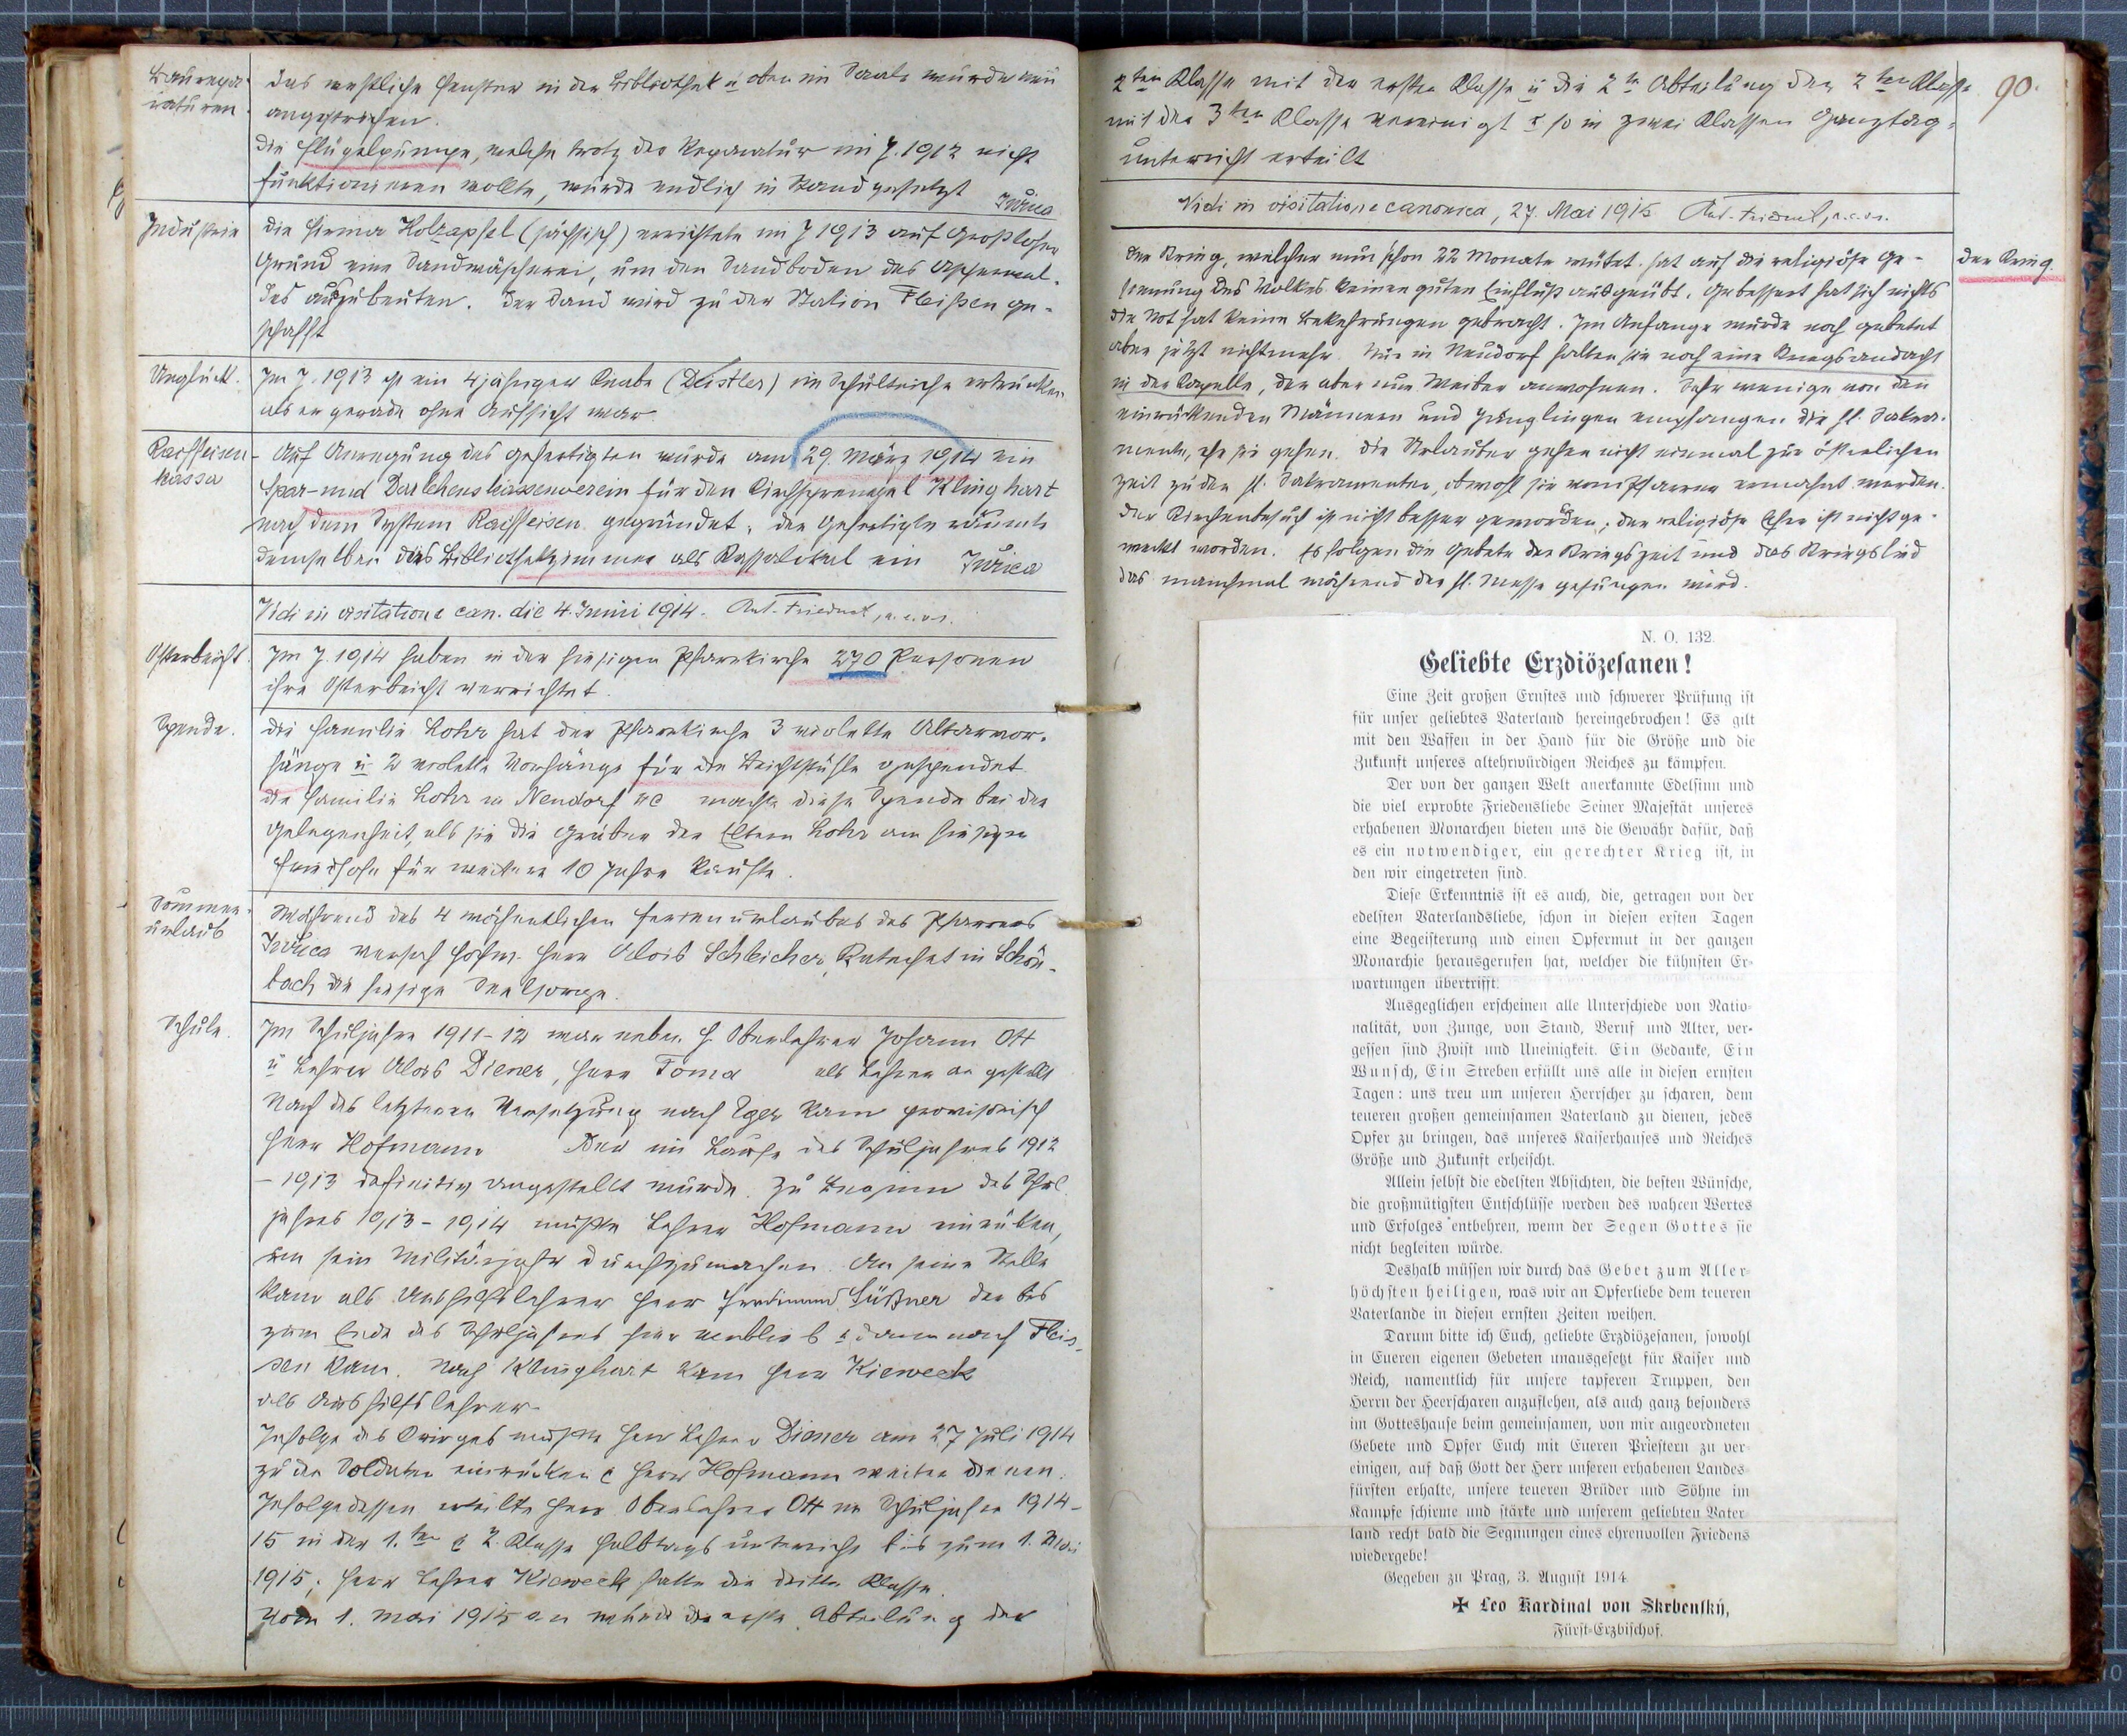 Baurepa-
raturen.
Das westliche Fenster in der Bibliothek u oben im Saale wurde neu
angestrichen.
Die Flügelpumpe, welche trotz der Reparatur im J. 1912 nicht
funktionieren wollte, wurde endlich in Stand gesetzt Jurica
Industrie
Die Firma Holzapfel (sächsisch) errichtete im J 1913 auf Großloher
Grund eine Sandwäscherei, um den Sandboden des
des auszubeuten. Der Sand wird zu der Station Fleißen ge-
schafft
Unglück.
Im J. 1913 ist ein 4jähriger Knabe (Deistler) im Schulteiche ertrunken
als er gerade ohne Aufsicht war.
Raiffeisen-
kassa
Auf Anregung des Gefertigten wurde am 29. März 1914 ein
Spar- und Darlehenskassenverein für den Kirchsprengel Klinghart
nach dem System Raiffeisen gegründet; der Gefertigte räumte
demselben das Bibliothekzimmer als Kassalokal ein Jurica
Vidi in visitatione can. die 4. Junii 1914. Ant. Friedrich, a.c.v.
Osterbeicht.
Im J. 1914 haben in der hiesigen Pfarrkirche 270 Personen
ihre Osterbeicht verrichtet.
Spende.
Die Familie Lohr hat der Pfarrkirche 3 violette Altarvor-
hänge u 2 violette Vorhänge für die Beichtstühle gespendet.
Die Familie Lohr in Neudorf machte diese Spende bei der
Gelegenheit, als sie die Gräber der Eltern Lohr am hiesigen
Friedhofe für weitere 10 Jahre kaufte.
Sommer-
urlaub
Während des 4 wöchentlichen Ferienurlaubes des Pfarrers
Jurica versah hochw. Herr Alois Schleicher, Katechet in Schön-
bach die hiesige Seelsorge.
Schule.
Im Schuljahre 1911-12 war neben H Oberlehrer Johann Ott
u Lehrer Alois Diener, Herr Toma als Lehrer angestellt
Nach des letzteren Versetzung nach Eger kam provisorisch
Herr Hofmann der im Laufe des Schuljahres 1912
- 1913 definitiv angestellt wurde. Zu Beginn des Schul
jahres 1913-1914 mußte Lehrer Hofmann einrücken,
um sein Militärjahr durchzumachen. An seine Stelle
kam als Aushilfslehrer Herr Ferdinand Süßner der bis
zum Ende des Schuljahres hier verblieb u dann nach Fleis-
sen kam. Nach Klinghart kam Herr Kieweck
als Aushilfslehrer.
Infolge des Krieges mußte Herr Lehrer Diener am 27 Juli 1914
zu den Soldaten einrücken u Herr Hofmann weiter dienen.
Infolgedessen erteilte Herr Oberlehrer Ott im Schuljahre 1914-
15 in der 1. ten u 2. Klasse Halbtagsunterricht bis zum 1. Mai
1915; Herr Lehrer Kieweck hatte die dritte Klasse.
Vom 1. Mai 1915 an wurde die erste Abteilung der
90.
2ten Klasse mit der ersten Klasse u die 2te Abteilung der 2ten Klasse
mit der 3ten Klasse vereinigt u so in zwei Klassen Ganztag-
unterricht erteilt
Vidi in visitatione canonica, 27. Mai 1915 Ant. Friedrich, a.c.v.
der Krieg.
Der Krieg, welcher nun schon 22 Monate wütet hat auf die religiöse Ge-
sinnung des Volkes keinen guten Einfluß ausgeübt. Gebessert hat sich nichts
die Not hat keine Bekehrungen gebracht. Im Anfange wurde noch gebetet
aber jetzt nichtmehr. Nur in Neudorf halten sie noch eine Kriegsandacht
in der Kapelle, der aber nur Weiber anwohnen. Sehr wenige von den
einrückenden Männern und Jünglingen empfangen die hl. Sakra-
mente, ehe sie gehen. Die Urlauber gehen nicht einmal zur österlichen
Zeit zu den hl. Sakramenten, obwohl sie vom Pfarrer ermahnt werden.
Der Kirchenbesuch ist nicht besser geworden; der religiöse Eifer ist nicht ge-
weckt worden. Es folgen die Gebete der Kriegszeit und das Kriegslied
das manchmal während der hl. Messe gesungen wird.
N. O. 132.
Geliebte Erzdiözesanen!
Eine Zeit großen Ernstes und schwerer Prüfung ist
für unser geliebtes Vaterland hereingebrochen! Es gilt
mit den Waffen in der Hand für die Größe und die
Zukunft unseres altehrwürdigen Reiches zu kämpfen.
Der von der ganzen Welt anerkannte Edelsinn und
die viel erprobte Friedensliebe Seiner Majestät unseres
erhabenen Monarchen bieten uns die Gewähr dafür, daß
es ein notwendiger, ein gerechter Krieg ist, in
den wir eingetreten sind.
Diese Erkenntnis ist es auch, die, getragen von der
edelsten Vaterlandsliebe, schon in diesen ersten Tagen
eine Begeisterung und einen Opfermut in der ganzen
Monarchie herausgerufen hat, welcher die kühnsten Er-
wartungen übertrifft.
Ausgeglichen erscheinen alle Unterschiede von Natio-
nalität, von Zunge, von Stand, Beruf und Alter, ver-
gessen sind Zwist und Uneinigkeit. Ein Gedanke, Ein
Wunsch, Ein Streben erfüllt uns alle in diesen ernsten
Tagen: uns treu um unseren Herrscher zu scharen, dem
teueren großen gemeinsamen Vaterland zu dienen, jedes
Opfer zu bringen, das unseres Kaiserhauses und Reiches
Größe und Zukunft erheischt.
Allein selbst die edelsten Absichten, die besten Wünsche,
die großmütigsten Entschlüsse werden des wahren Wertes
und Erfolges entbehren, wenn der Segen Gottes sie
nicht begleiten würde.
Deshalb müssen wir durch das Gebet zum Aller-
höchsten heiligen, was wir an Opferliebe dem teueren
Vaterlande in diesen ernsten Zeiten weihen.
Darum bitte ich Euch, geliebte Erzdiözesanen, sowohl
in Eueren eigenen Gebeten unausgesetzt für Kaiser und
Reich, namentlich für unsere tapferen Truppen, den
Herrn der Heerscharen anzuflehen, als auch ganz besonders
im Gotteshause beim gemeinsamen, von mir angeordneten
Gebete und Opfer Euch mit Eueren Priestern zu ver-
einigen, auf daß Gott der Herr unseren erhabenen Landes-
fürsten erhalte, unsere teueren Brüder und Söhne im
Kampfe schirme und stärke und unserem geliebten Vater-
land recht bald die Segnungen eines ehrenvollen Friedens
wiedergebe!
Gegeben zu Prag, 3. August 1914.
✠ Leo Kardinal von Skrbenský,
Fürst-Erzbischof.